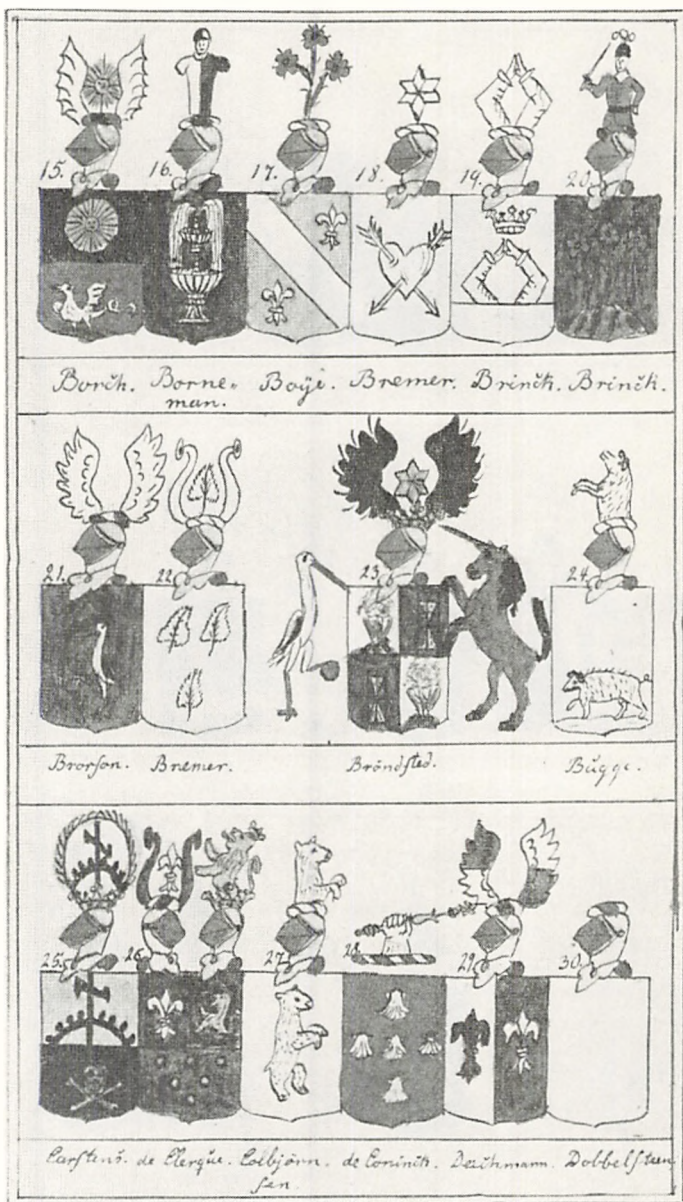 15. 16. 17. 18. 19. 20.
Borčk. Borne- Boÿe. Bremer. Brinčk. Brinčk.
man.
21. 22. 23. 24.
Brorson. Bremer. Bröndsted. Bŭgge.
25. 26. 27. 28. 29. 30.
Carstens. de Clerque. Colbjörn. de Coninčk. Deičhmann. Dobbelsteen
sen.